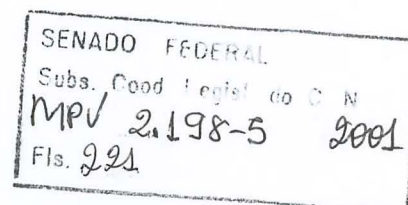 SENADO FEDERAL
Subs. Cood Legisl do C N
MPV 2.198-5 2001
Fls. 221